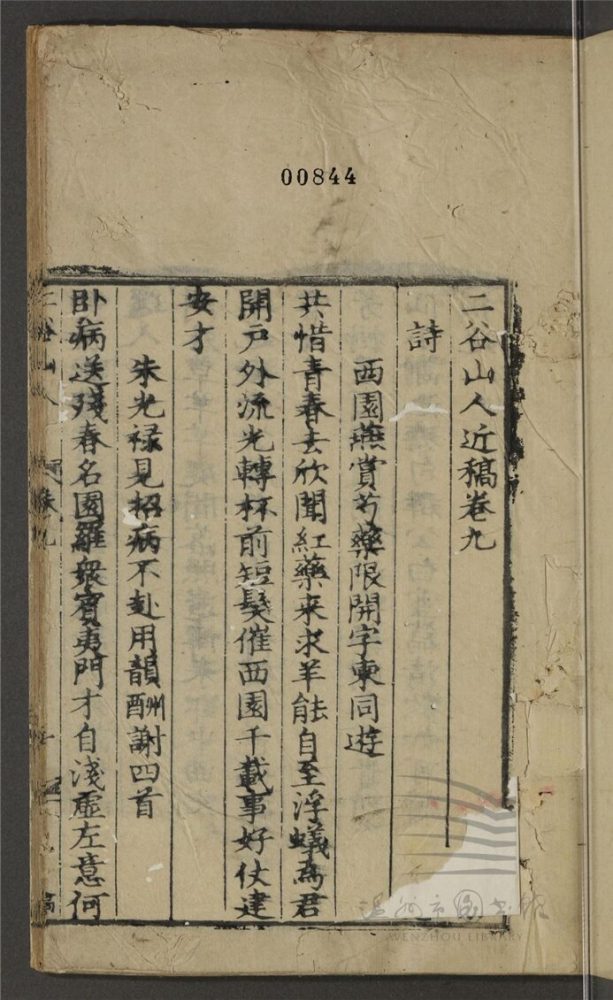 00844
二谷山人近稿卷九
詩
西園燕賞芍藥限開字柬同遊
共惜青春去欣聞紅藥来求羊能自至浮蟻為君
開戶外流光轉杯前短髮催西園千載事好仗建
安才
朱光祿見招病不赴用韻酬謝四首
卧病送殘春名園羅衆賓夷門才自淺虛左意何
二谷山人
卷九
溫州市圖书館
WENZHOU LIBRARY